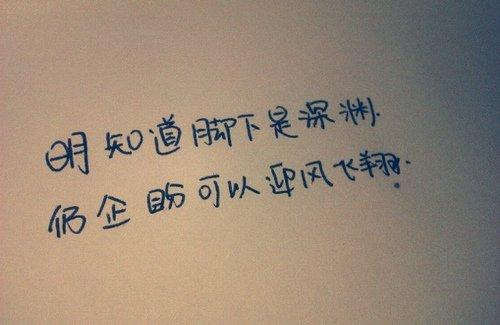 明知道脚下是深渊.
仍企盼可以迎风飞翔.